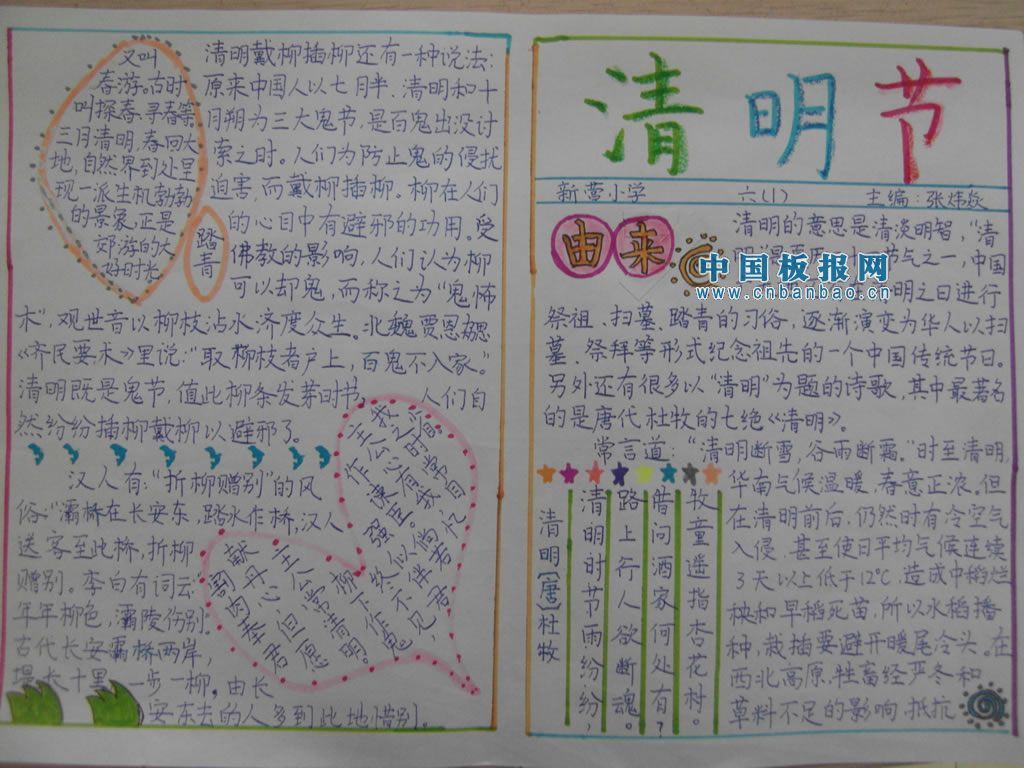 又叫
春游。古时
叫探春、寻春等
三月清明,春回大
地,自然界到处呈
现一派生机勃勃
的景象,正是
郊游的大
好时光
踏青
清明戴柳插柳还有一种说法:
原来中国人以七月半、清明和十
月朔为三大鬼节,是百鬼出没讨
索之时。人们为防止鬼的侵扰
迫害,而戴柳插柳。柳在人们
的心目中有避邪的功用。受
佛教的影响,人们认为柳
可以却鬼,而称之为“鬼怖
木”,观世音以柳枝沾水济度众生。北魏贾思勰
《齐民要术》里说:“取柳枝者户上,百鬼不入家。”
清明既是鬼节,值此柳条发芽时节
人们自
然纷纷插柳戴柳以避邪了。
汉人有:“折柳赠别”的风
俗:“灞桥在长安东,跨水作桥,汉人
送客至此桥,折柳
赠别。李白有词云:
年年柳色,灞陵伤别。
古代长安灞桥两岸,
堤长十里,一步一柳,由长
安东去的人多到此地惜别。
割肉奉君
尽丹心,但愿
主公常清明。
柳下作鬼
终不见,
强似伴君
作谏臣。倘若
主公心有我,忆
我之时常自省
清明节
新营小学
六(1)
主编:张炜
由来
清明的意思是清淡明智,“清
节气之一,中国
明之日进行
祭祖、扫墓、踏青的习俗,逐渐演变为华人以扫
墓、祭拜等形式纪念祖先的一个中国传统节日。
另外还有很多以“清明”为题的诗歌,其中最著名
的是唐代杜牧的七绝《清明》。
中国板报网
www.cnbanbao.cn
常言道:“清明断雪,谷雨断霜。”时至清明,
华南气候温暖,春意正浓。但
在清明前后,仍然时有冷空气
入侵,甚至使日平均气候连续
3天以上低于12℃,造成中稻烂
秧和早稻死苗,所以水稻播
种、栽插要避开暖尾冷头。在
西北高原,牲畜经严冬和
草料不足的影响,抵抗
清明[唐]杜牧
清明时节雨纷纷,
路上行人欲断魂。
昔问酒家何处有?
牧童遥指杏花村。